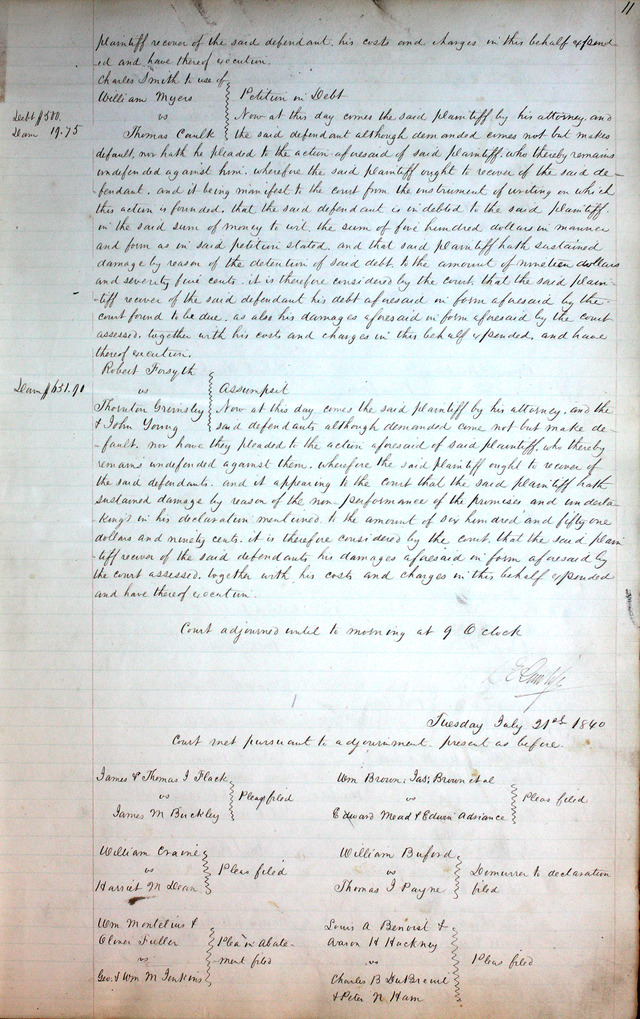 11
plaintiff recover of the said defendant his costs and charges in this behalf expend-
ed and have thereof execution.
Charles Smith to use of
William Myers
vs
Thomas Caulk
Petition in Debt
Debt $500.
Dam 19.75
Now at this day comes the said plaintiff by his attorney, and
the said defendant although demanded comes not but makes
default, nor hath he pleaded to the action aforesaid of said plaintiff, who thereby remains
undefended against him. wherefore the said plaintiff ought to recover of the said de-
fendant. and it being manifest to the court from the instrument of writing on which
this action is founded, that the said defendant is indebted to the said plaintiff.
in the said sum of money to wit, the sum of five hundred dollars in manner
and form as in said petition stated. and that said plaintiff hath sustained
damage by reason of the detention of said debt to the amount of nineteen dollars
and seventy five cents. it is therefore considered by the court, that the said plain-
-tiff recover of the said defendant his debt aforesaid in form aforesaid by the
court found to be due. as also his damages aforesaid in form aforesaid by the court
assessed. together with his costs and charges in this behalf expended, and have
thereof execution.
Robert Forsyth
vs
Thornton Grimsley
& John Young
Assumpsit
Dam $651.90
Now at this day comes the said plaintiff by his attorney, and the
said defendants although demanded come not but make de-
-fault. nor have they pleaded to the action aforesaid of said plaintiff, who thereby
remains undefended against them. wherefore the said plaintiff ought to recover of
the said defendants. and it appearing to the court that the said plaintiff hath
sustained damage by reason of the non performance of the promises and underta-
-kings in his declaration mentioned. to the amount of six hundred and fifty one
dollars and ninety cents. it is therefore considered by the court, that the said plain
tiff recover of the said defendants his damages aforesaid in form aforesaid by
the court assessed. together with his costs and charges in this behalf expended
and have thereof execution.
Court adjourned until to morning at 9 O clock
Tuesday July 21st 1840
Court met pursuant to adjournment. present as before.
James & Thomas J Flack
vs
James M Buckley
Pleas filed
Wm Brown, Jas; Brown et al
vs
Edward Mead & Edwin Adriance
Pleas filed
William Craine
vs
Harriet M Doan
Pleas filed
William Buford
vs
Thomas J Payne
Demurrer to declaration
filed
Wm Montelius &
Oliver Fuller
vs
Geo: & Wm M Jenkins
Plea in Abate-
-ment filed
Louis A Benoist &
Aaron H Hackney
vs
Charles B DuBreuil
& Peter N Ham
Pleas filed